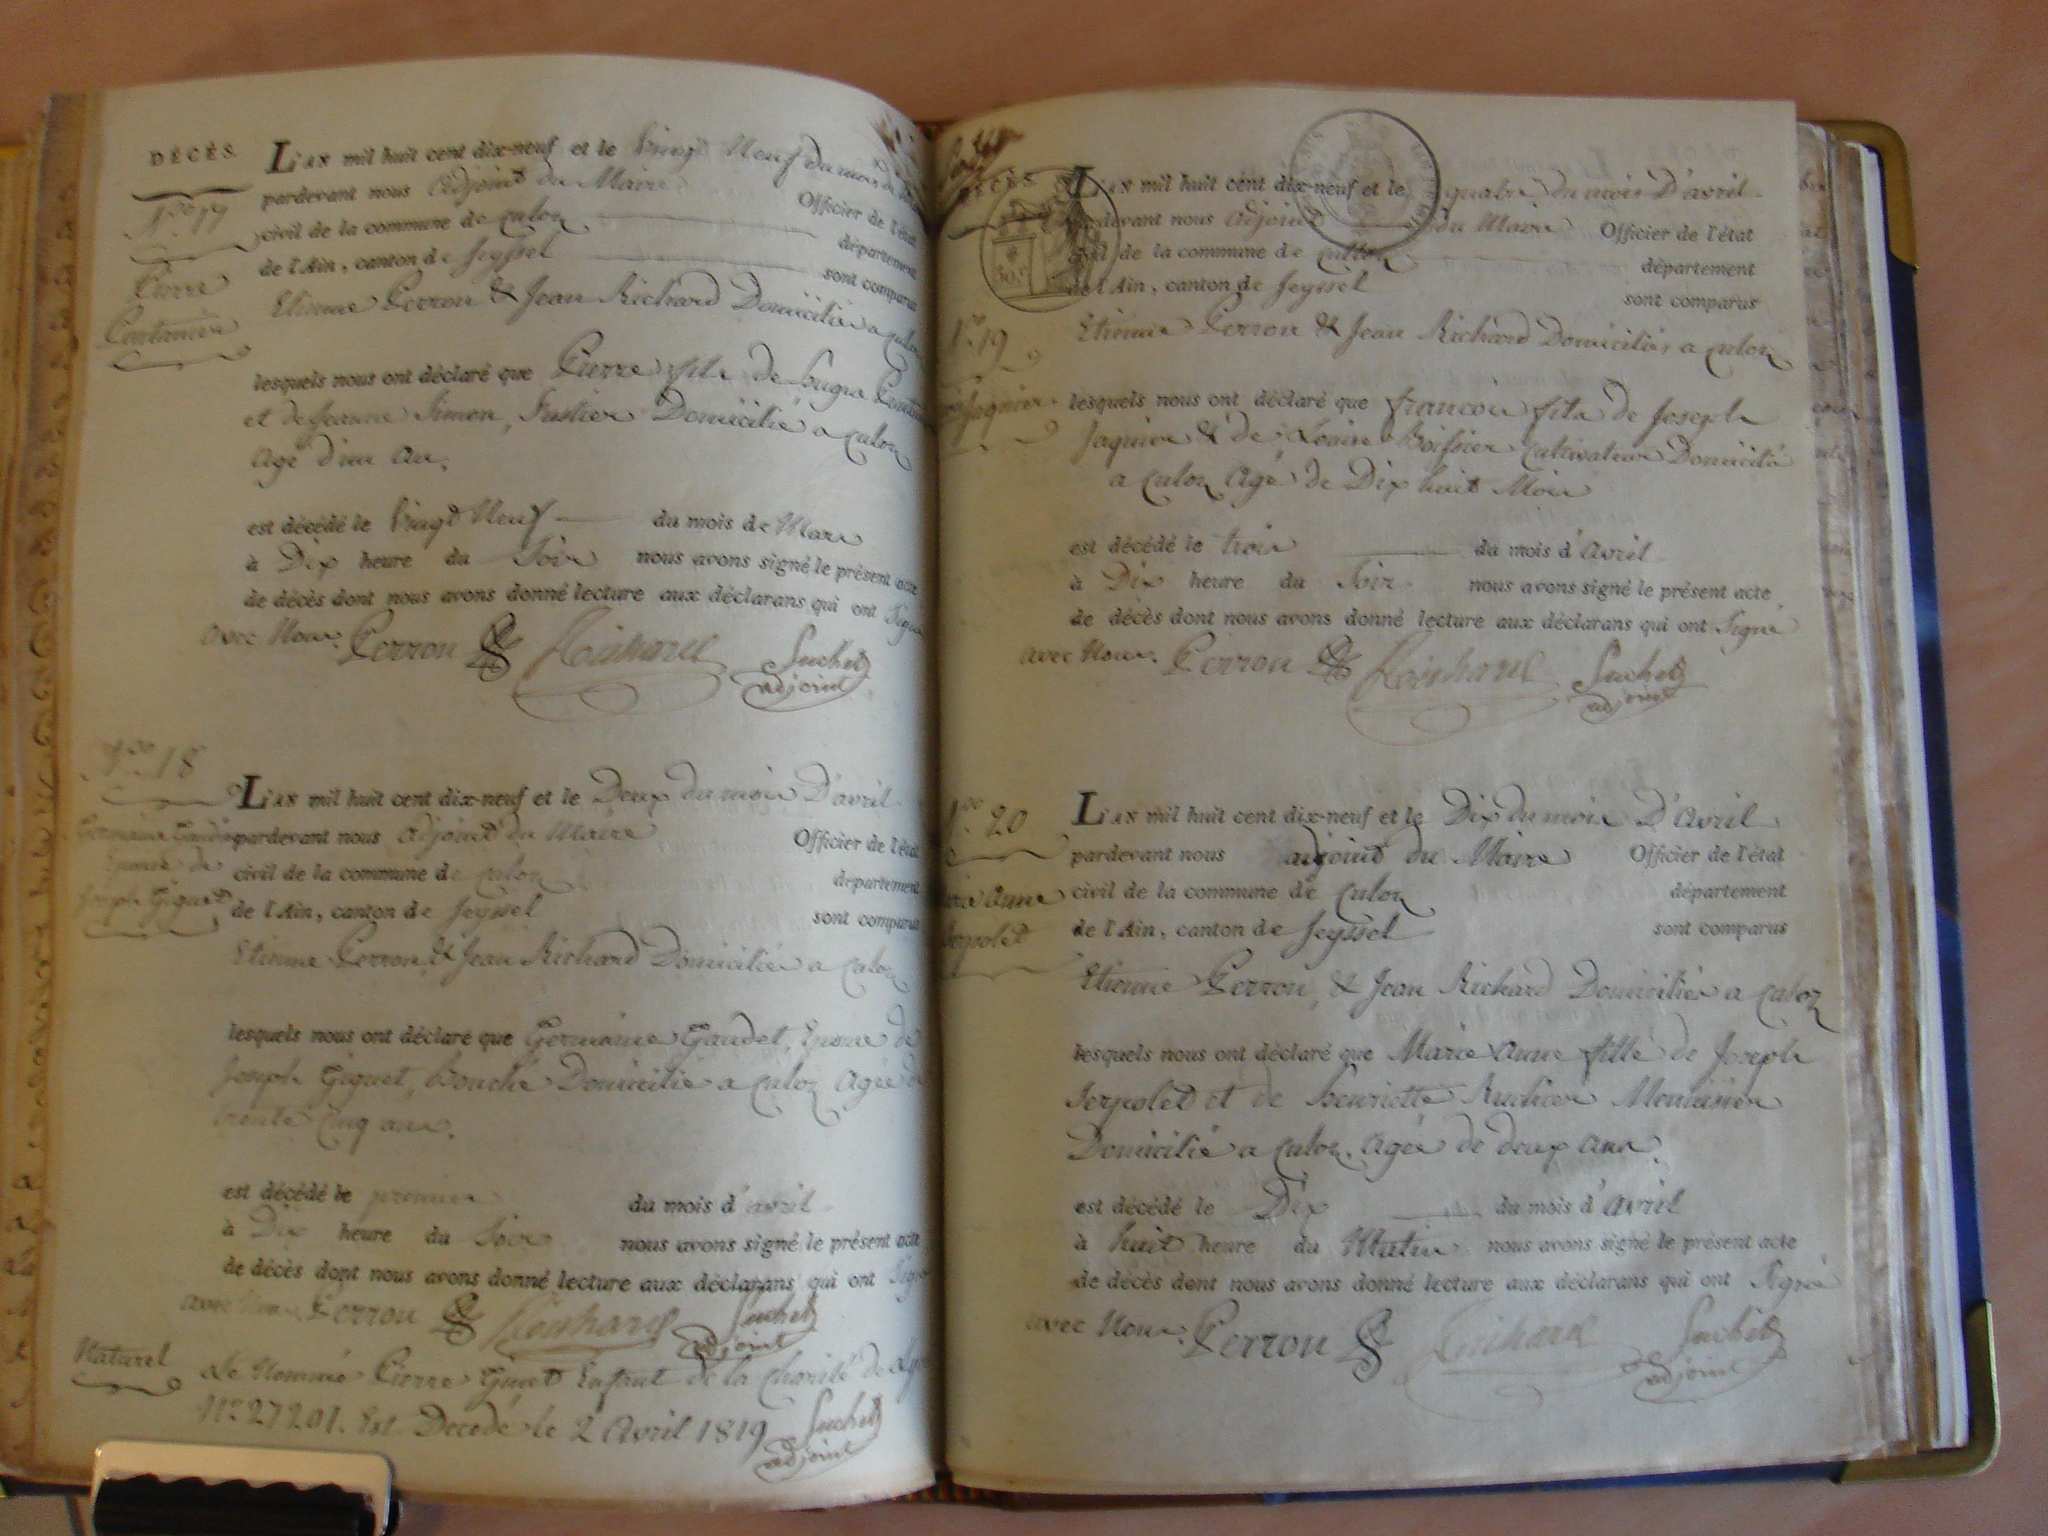 DÉCÈS.
L'AN mil huit cent dix-neuf et le Vingt Neuf du mois de
pardevant nous Adjoint du Maire
Officier de l'état
civil de la commune de Culoz
département
de l'Ain, canton de Seyssel
sont comparus
Etienne Perron & Jean Richard Domiciliés a Culoz
lesquels nous ont déclaré que Pierre fils de hugue
et de Jeanne Simon, Domicilié a Culoz
Agé d'un An.
est décédé le Vingt Neuf du mois de Mars
à Dix heure du Soir nous avons signé le présent acte
de décès dont nous avons donné lecture aux déclarans qui ont Signé
avec Nous. Perron & Richard Suchet
adjoint
No. 17
Pierre
No. 18
Germaine Gaudet
Epouse de
Joseph Giguet
L'AN mil huit cent dix-neuf et le Deux du mois D'avril
pardevant nous Adjoint du Maire Officier de l'état
civil de la commune de Culoz département
de l'Ain, canton de Seyssel sont comparus
Etienne Perron & Jean Richard Domiciliés a Culoz
lesquels nous ont déclaré que Germaine Gaudet, Epouse de
Joseph Giguet, Domicilié a Culoz Agée de
trente Cinq ans.
est décédé le premier du mois d'avril
à Dix heure du Soir nous avons signé le présent acte
de décès dont nous avons donné lecture aux déclarans qui ont Signé
avec Nous Perron & Richard Suchet
adjoint
Naturel
Le Nommé Pierre Enfant de la Charité de
No. 27201. Est Decedé le 2 Avril 1819 Suchet
adjoint
DÉCÈS
L'AN mil huit cent dix-neuf et le quatre du mois D'avril
pardevant nous Adjoint du Maire Officier de l'état
civil de la commune de Culoz département
de l'Ain, canton de Seyssel sont comparus
Etienne Perron & Jean Richard Domiciliés a Culoz
No. 19
Jaquier
lesquels nous ont déclaré que françois fils de Joseph
Jaquier & de Louise Boissier Cultivateur Domicilié
a Culoz Agé de Dix huit Mois
est décédé le trois du mois d'avril
à Dix heure du Soir nous avons signé le présent acte
de décès dont nous avons donné lecture aux déclarans qui ont Signé
avec Nous. Perron & Richard Suchet
adjoint
No. 20
Marie Anne
Serpolet
L'AN mil huit cent dix-neuf et le Dix du mois D'Avril
pardevant nous adjoint du Maire Officier de l'état
civil de la commune de Culoz département
de l'Ain, canton de Seyssel sont comparus
Etienne Perron, & Jean Richard Domiciliés a Culoz
lesquels nous ont déclaré que Marie Anne fille de Joseph
Serpolet et de henriette Menuisier
Domicilié a Culoz. Agée de deux Ans.
est décédé le Dix du mois d'avril
à huit heure du Matin nous avons signé le présent acte
de décès dont nous avons donné lecture aux déclarans qui ont Signé
avec Nous. Perron & Richard Suchet
adjoint